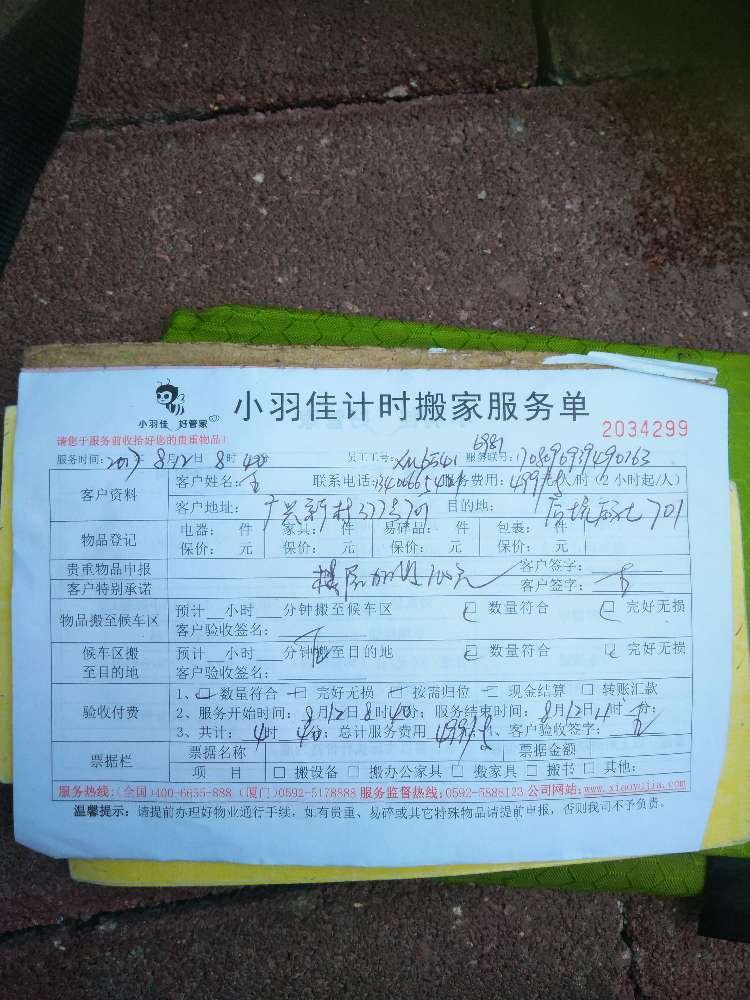 小羽佳 好管家
小羽佳计时搬家服务单
2034299
请您于服务前收拾好您的贵重物品!
服务时间: 2017年 8月12日 8时40分 员工工号: 服务联号:
客户资料
客户姓名: 联系电话: 服务费用: 499 /人时 (2小时起/人)
客户地址: 广兴新村 目的地: 701
物品登记
电器: 件 家具: 件 易碎品: 件 包裹: 件
保价: 元 保价: 元 保价: 元 保价: 元
贵重物品申报 客户签字:
客户特别承诺 楼层加收100元 客户签字:
物品搬至候车区
预计 小时 分钟搬至候车区 数量符合 完好无损
客户验收签名:
候车区搬至目的地
预计 小时 分钟搬至目的地 数量符合 完好无损
客户验收签名:
验收付费
1、 数量符合 完好无损 按需归位 现金结算 □ 转账汇款
2、服务开始时间: 8月12日8时40分; 服务结束时间: 8月12日 时 分;
3、共计: 4时 40分; 总计服务费用 499 、客户验收签字:
票据栏
票据名称 票据金额
项 目 □ 搬设备 □ 搬办公家具 □ 搬家具 □ 搬书 □ 其他:
服务热线:(全国)400-6655-888 (厦门)0592-5178888 服务监督热线:0592-5888123 公司网站:www.xiaoyujia.com
温馨提示: 请提前办理好物业通行手续, 如有贵重、易碎或其它特殊物品请提前申报, 否则我司不予负责。